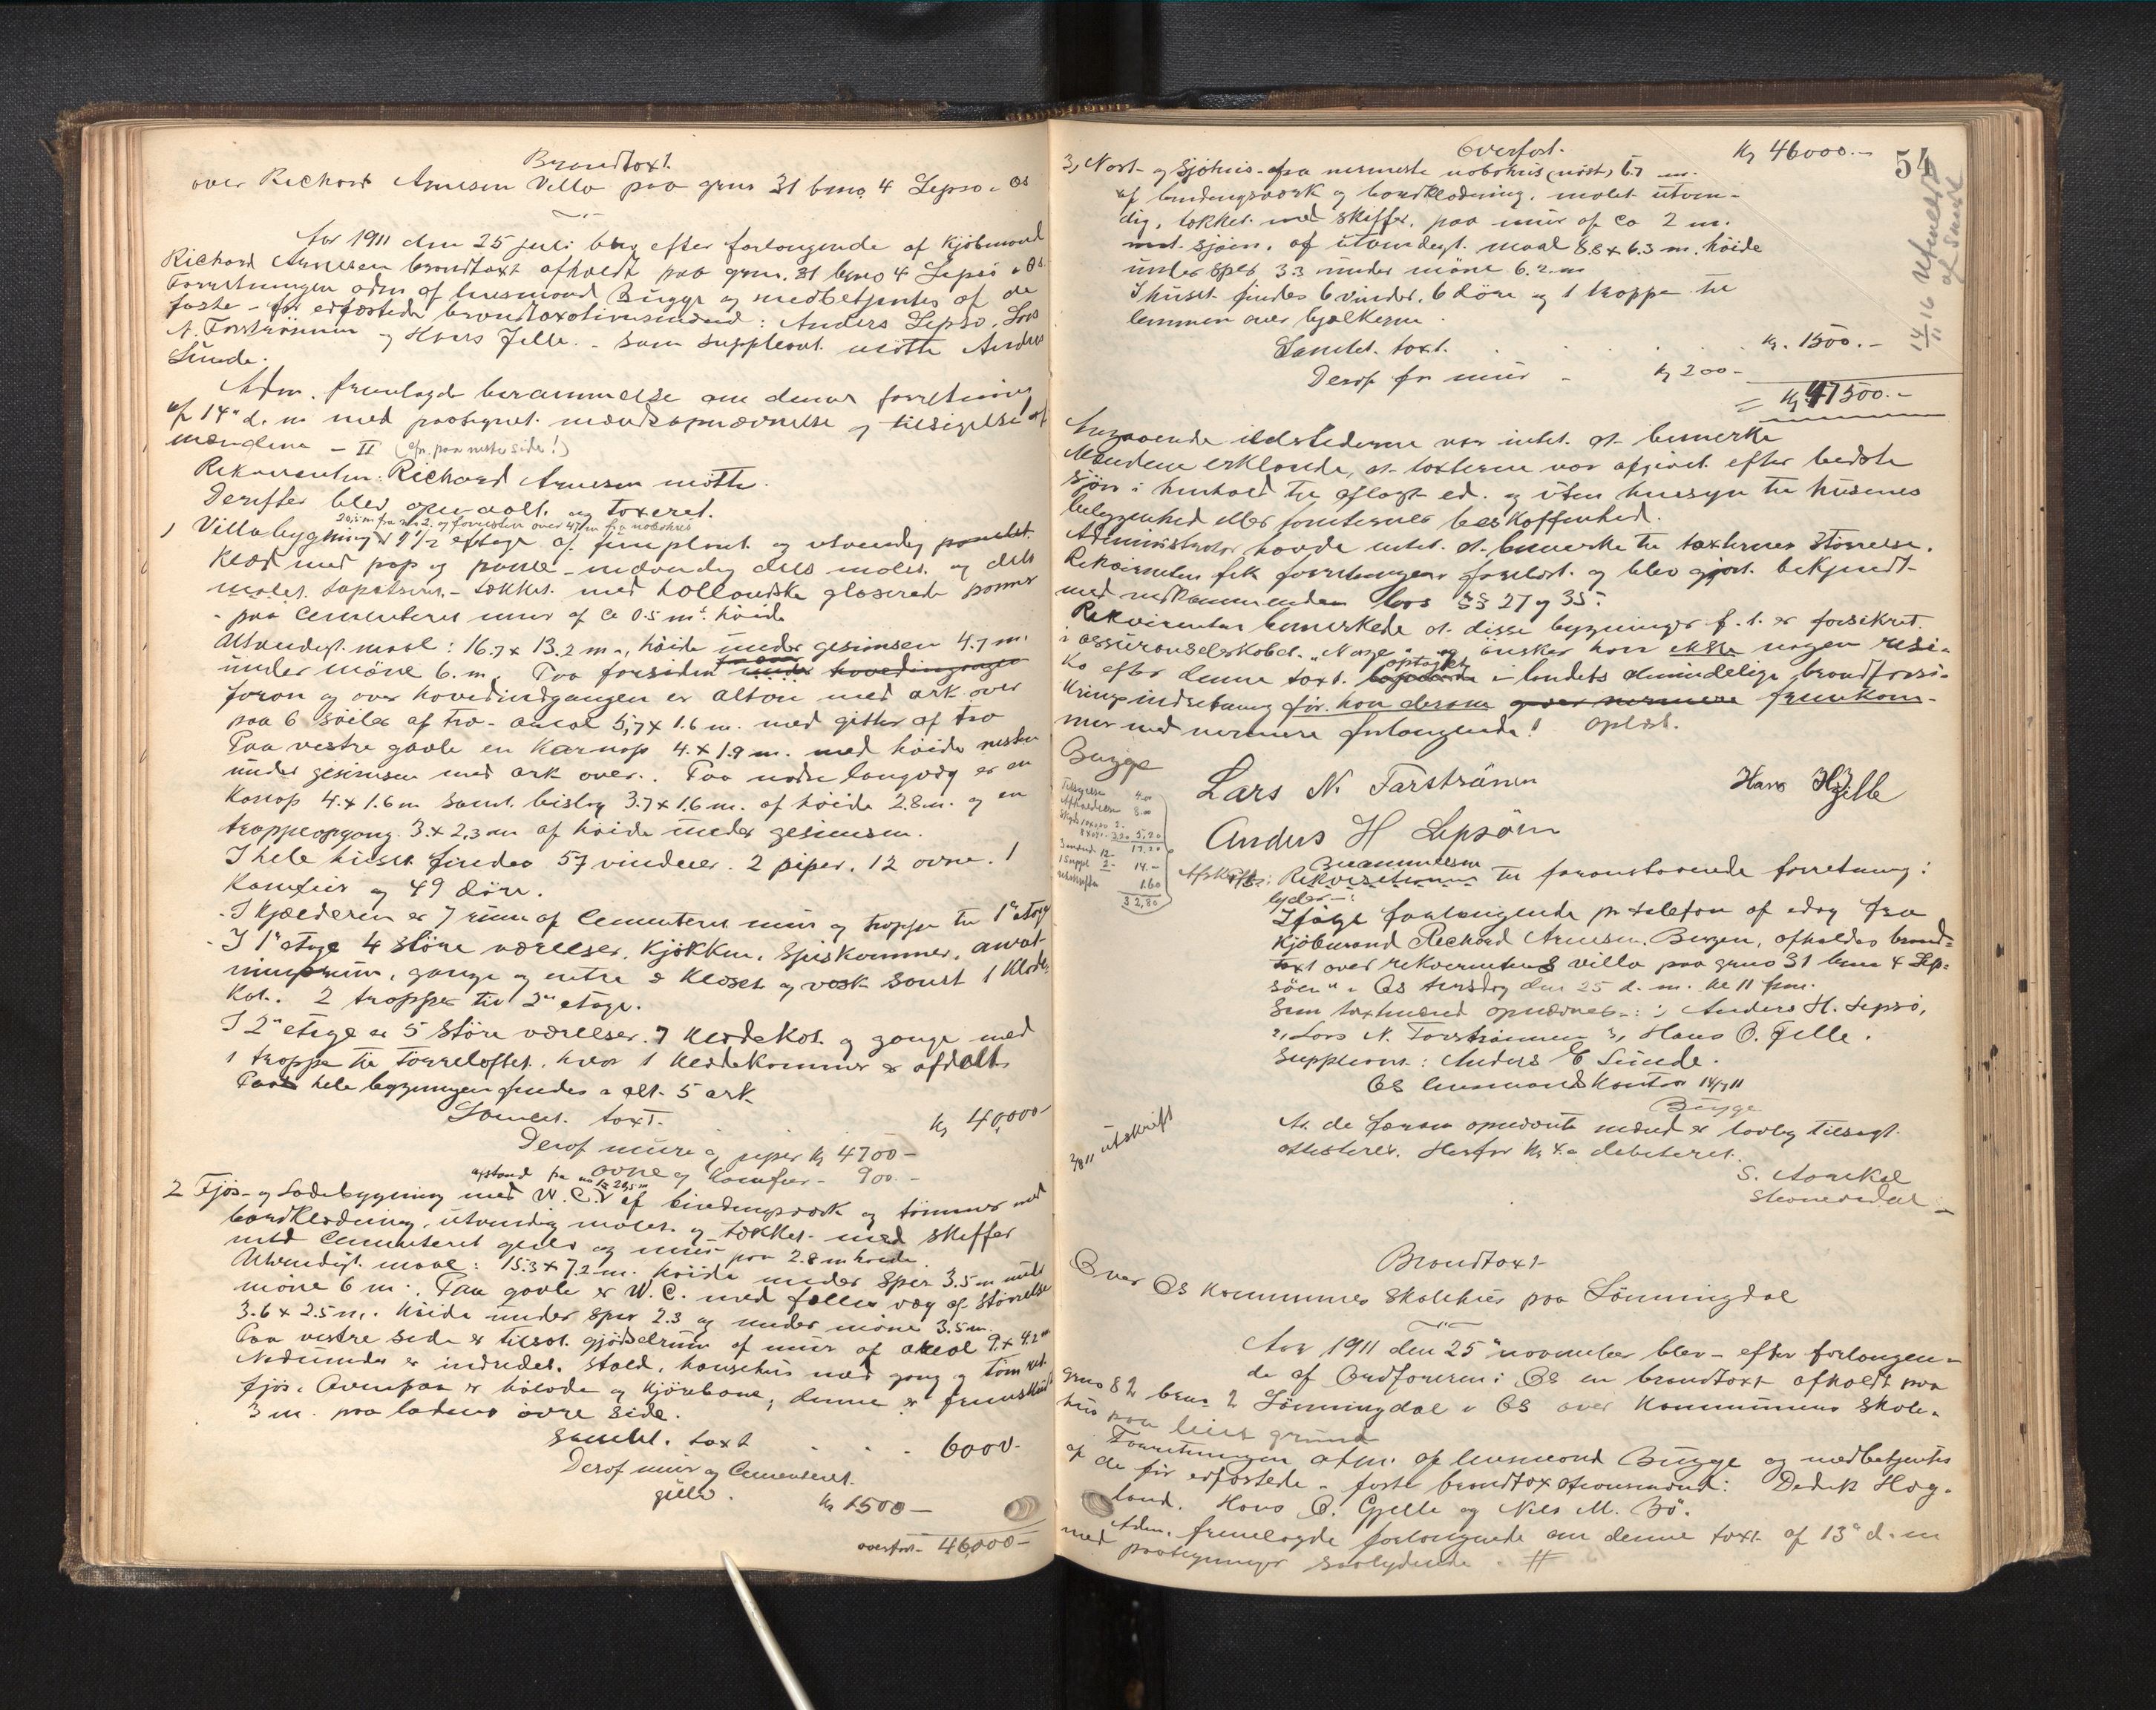 Brandtaxt.
over Richard Arnesen Villa paa grno 31 brno 4 Lepsø i Os
Aar 1911 den 25 juli blev efter forlangende af Kjøbmand
Richard Arnesen brandtaxt afholdt paa grno. 31 brno 4 Lepsø i Os.
Forretningen adm. af lensmand Bugge og medbetjentes af de
faste - før edfæstede brandtaxationsmænd: Anders Lepsø, Lars
N. Forstrønen og Hans Jelle. - Som suppleant mötte Anders
Sunde.
Adm. fremlagde berammelse om denne forretning
af 14de d. m. med paategnet mændsopnævnelse og tilsigelse af
mændene - II (afsr. paa neste side!)
Rekvirenten: Richard Arnesen mötte.
Derefter blev opmaalt og taxeret.
20,5 m fra no 2. og forresten over 47 m fra nabohus
1 Villabygning 1 1/2 etage af timplank og utvendig panelet.
Klæd med pap og panel - indvendig dels malet og dels
malet tapetseret - tækket med hollandske glaserede panner
- paa Cementeret mur af ca 0.5 m's höide
Utvendigt maal: 16.7 x 13.2 m., höide under gesimsen 4.7 m.
under möne 6. m. Paa forsiden under hovedingangen
foran og over hovedindgangen er altan med ark over
paa 6 söiler af træ - areal 5,7 x 1.6 m. med gitter af træ
Paa vestre gavle en Karnap 4. x 1.9 m. med höide nesten
under gesimsen med ark over. Paa nordre langvæg er en
Karnap 4. x 1.6 m samt bislag 3.7 x 1.6 m. af höide 2.8 m. og en
trappeopgang 3. x 2,3 m af höide under gesimsen.
I hele huset findes 57 vinduer. 2 piper, 12 ovne. 1
Komfur og 49 döre.
- I Kjælderen er 7 rum af Cementeret mur og trappe til 1ste etage
- I 1ste etage 4 större værelser, Kjøkken, Spiskammer, anret-
ningsrum, gange og entre 2 Kloset og vask samt 1 Klæde-
Kot. 2 trapper til 2den etage.
I 2den etage er 5 större værelser. 7 Klædekot. og gange med
1 trappe til Tørreloftet, hvor 1 Klædekammer er afdelt
Paa hele bygningen findes i alt 5 ark
Samlet taxt. Kr 40,000-
Deraf mure og piper Kr 4700-
ovne og Komfur - 900.-
afstand fra no 1 20,5 m
2 Fjös- og Ladebygning med W.C. af bindingsværk og tömmer med
bordklædning, utvendig malet og tækket med skiffer
med Cementeret gulv og mur paa 2.8 m höide.
Utvendigt maal: 15.3 x 7.2 m. höide under Sper 3.5 m under
möne 6 m. Paa gavle er W.C. med fælles væg af Störrelse
3.6 x 2.5 m. Höide under sper 2.3 og under möne 3.5 m.
Paa vestre side er tilsat gjödselrum af mur af areal 9. x 4.2 m
Nedunder er indredet stald, hønsehus med gang og tömret
fjös. Ovenpaa er hölade og Kjörebane; denne er fremskudt
3 m. paa ladens övre side.
Samlet. taxt . . . 6000-
Deraf mur og Cementeret
gulv. Kr 1500-
overfört 46000-
54
Overfört. Kr 46000.-
3, Nøst- og Sjöhus - fra nermeste nabohus (nöst) 6.7 m.
af bindingsværk og bordklædning, malet utven-
dig, tækket med skiffer, paa mur af ca 2 m.
mot sjöen, af utvendigt maal 8.8 x 6.3 m. höide
under sper 3.3 under möne 6.2. m
I huset findes 6 vinduer, 6 döre og 1 trappe til
lemmen over bjælkerne.
Samlet. taxt. . . . Kr. 1500.-
Deraf for mur - Kr 200-
= Kr 47500.-
14/11 16 Utmeldt
af Sund
Angaaende ildstederne var intet at bemerke
Mændene erklærede, at taxterne var afgivet efter bedste
sjön i henhold til aflagt ed. og uten hensyn til husenes
beliggenhed eller tomternes beskaffenhed.
Administrator havde intet at bemerke til taxternes större.
Rekvirenten fik forretningen forelæst og blev gjort bekjendt
med vedkommenden lovs §§ 27 og 35.
Rekvirenten bemerkede at disse bygninger f. t. er forsikret
i assuranseselskabet "Norge" og önsker han ikke nogen risi-
ko efter denne taxt. optaget i landets almindelige brandforsi-
kringsindretning för han derom fremkom-
mer med nermere forlangende! Oplæst.
Bugge
Lars N. Farstrånen Hans H Jelle
Anders H Lepsöen
Tilsigelse 4.00
Afholdelse 8.00
5,20
17.20
3 mænd 12-
1 Suppl 2- 14-
1.60
32,80
Afskrift: Berammelsen Rekvisitionen til foranstaaende forretning:
lyder -:
Ifølge forlangende pr telefon af idag fra
Kjöbmand Richard Arnesen, Bergen, afholdes brand-
taxt over rekvirentens villa paa grno 31 brno 4 Lep-
söen i Os tirsdag den 25 d. m. kl 11 fm.
Som taxtmænd opnævnes: 1, Anders H. Lepsö,
2, Lars N. Forstrånen 3, Hans O. Gjelle.
Suppleant: Anders E Sunde.
Os lensmandskontor 14/7 11
Bugge
At de foran opnævnte mænd er lovlig tilsagt.
attesteres. Herfor Kr 4.- debiteret.
S. Aarekol
3/8 11 utskrift
Brandtaxt
Over Os Kommunes Skolehus paa Lönningdal
Aar 1911 den 25de november blev - efter forlangen-
de af Ordføreren i Os en brandtaxt afholdt paa
grno 82 brno 2 Lönningdal i Os over Kommunens Skole-
hus paa leiet grund
Forretningen adm. af lensmand Bugge og medbetjentes
af de för edfæstede - faste brandtaxationsmænd: Dedrik Hög-
land. Hans O. Gjelle og Nils M. Bö.
Adm. fremlagde forlangende om denne taxt af 13de d. m
med paategninger saalydende. #